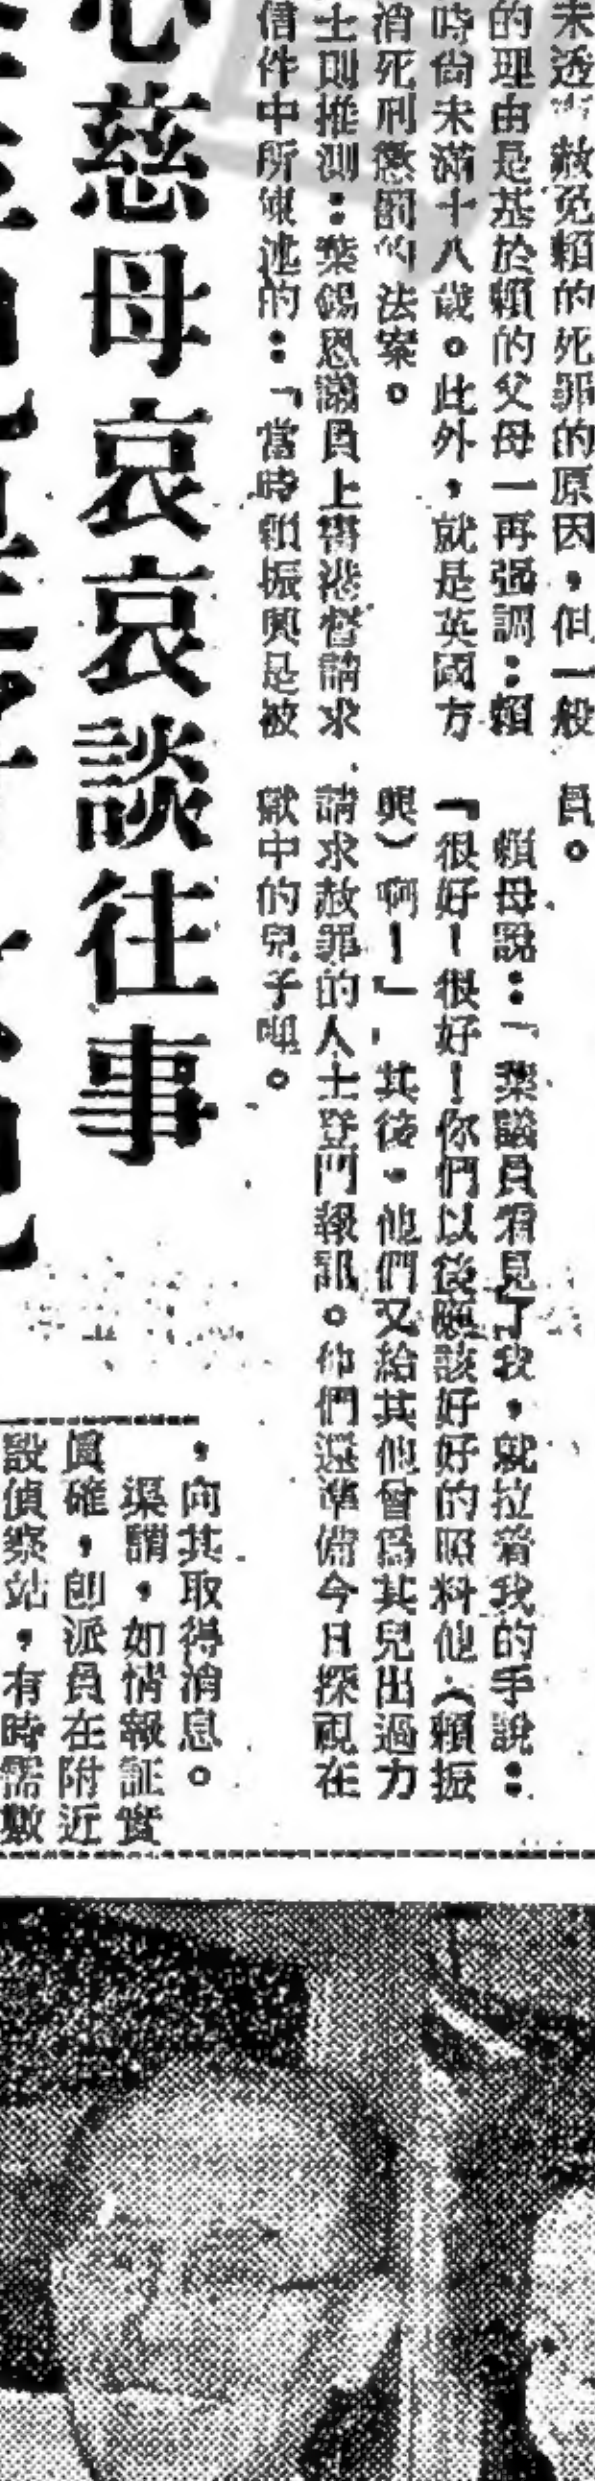 未透 赦免賴的死罪的原因，但一般
的理由是基於賴的父母一再強調：賴
時尚未滿十八歲。此外，就是英國方
消死刑懲罰的法案。
士則推測：葉錫恩議員上書港督請求
信件中所陳述的：「當時賴振興是被
員。
賴母說：「葉議員看見了我，就拉着我的手說：
『很好！很好！你們以後應該好好的照料他（賴振
興）啊！」其後，他們又給其他曾爲其兒出過力
請求赦罪的人士登門報訊。他們還準備今日探視在
獄中的兒子呢。
心慈母哀哀談往事
，向其取得消息。
渠謂，如情報証實
眞確，卽派員在附近
設偵察站，有時需數